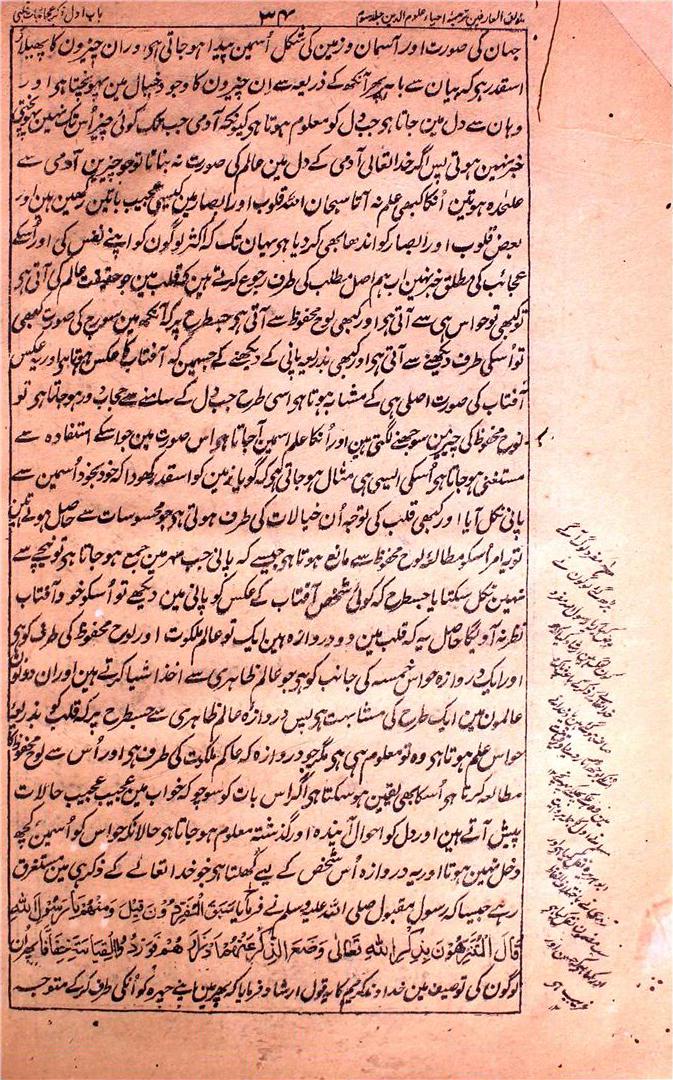 مذاق العارفین ترجمۂ احیاء علوم الدین جلد سوم
۳۴
باب اول ذکر عجائبات قلبی
جہان کی صورت اور آسمان و زمین کی شکل اُسمین پیدا ہو جاتی ہی اور ان چیزون کا پھیلاؤ
اسقدر ہی کہ بیان سے باہر پھر آنکھ کے ذریعہ سے ان چیزون کا وجود خیال مین پہونچتا ہی اور
وہان سے دل مین جاتا ہی جب دل کو معلوم ہوتا ہی کیونکہ آدمی جب تک کوئی چیز اُس تک نہین پہونچتی
خبر نہین ہوتی پس اگر خدا تعالی آدمی کے دل مین عالم کی صورت نہ بناتا تو جو چیزین آدمی سے
علیٰحدہ ہوتین اُنکا کبھی علم نہ آتا سبحان اللہ قلوب اور ابصار مین کیسی عجیب باتین رکھین ہین اور
بعض قلوب اور ابصار کو اندھا بھی کر دیا ہی یہان تک کہ اکثر لوگون کو اپنے نفس کی اور اُسکے
عجائب کی مطلق خبر نہین اب ہم اصل مطلب کی طرف رجوع کرتے ہین کہ قلب مین جو حقیقت عالم کی آتی ہی
تو کبھی تو حواس ہی سے آتی ہی اور کبھی لوح محفوظ سے آتی ہی جسطرح پر کہ آنکھ مین سورج کی صورت کبھی
تو اُسکی طرف دیکھنے سے آتی ہی اور کبھی بذریعہ پانی کے دیکھنے کے جسمین کہ آفتاب کا عکس ہوتا ہی اور یہ عکس
آفتاب کی صورت اصلی ہی کے مشابہ ہوتا ہی اسی طرح جب دل کے سامنے سے حجاب دور ہو جاتا ہی تو
لوح محفوظ کی چیزین سوجھنے لگتی ہین اور اُنکا علم اسمین آ جاتا ہی اس صورت مین حواس کے استفادہ سے
مستغنی ہو جاتا ہی اُسکی ایسی ہی مثال ہو جاتی ہی کہ گویا زمین کو اسقدر کھودا کہ خود بخود اُسمین سے
پانی نکل آیا اور کبھی قلب کی توجہ اُن خیالات کی طرف ہوتی ہی جو محسوسات سے حاصل ہوتے ہین
تو یہ امر اُسکو مطالعۂ لوح محفوظ سے مانع ہوتا ہی جیسے کہ پانی جب نہر مین جمع ہو جاتا ہی تو نیچے سے
نہین نکل سکتا یا جسطرح کہ کوئی شخص آفتاب کے عکس کو پانی مین دیکھے تو اُسکو خود آفتاب
نظر نہ آویگا حاصل یہ کہ قلب مین دو دروازہ ہین ایک تو عالم ملکوت اور لوح محفوظ کی طرف کو ہی
اور ایک دروازہ حواس خمسہ کی جانب کو ہی جو عالم ظاہری سے اخذ اشیا کرتے ہین اور ان دونون
عالمون مین ایک طرح کی مشابہت ہی پس دروازہ عالم ظاہری سے جسطرح پر کہ قلب کو بذریعہ
حواس علم ہوتا ہی وہ تو معلوم ہی ہی مگر جو دروازہ کہ عالم ملکوت کی طرف ہی اور اُس سے لوح محفوظ کا
مطالعہ کرتا ہی اُسکا بھی یقین ہو سکتا ہی اگر اس بات کو سوچو کہ خواب مین عجیب عجیب حالات
پیش آتے ہین اور دل کو احوال آیندہ اور گذشتہ معلوم ہو جاتا ہی حالانکہ حواس کو اُسمین کچھ
دخل نہین ہوتا اور یہ دروازہ اُس شخص کے لیے کھلتا ہی جو خدا تعالے کے ذکر ہی مین مستغرق
رہے جیسا کہ رسول مقبول صلی اللہ علیہ وسلم نے فرمایا سَبَقَ الْمُفَرِّدُوْنَ قِیْلَ وَمَنْ هُمْ یَا رَسُوْلَ اللّٰهِ
قَالَ الْمُتَنَزِّهُوْنَ بِذِكْرِ اللّٰهِ تَعَالٰی وَضَعَ الذِّكْرُ عَنْهُمْ اَوْزَارَهُمْ فَوَرَدُوا الْقِیَامَةَ خِفَافًا پھر اُن
لوگون کی توصیف مین خداوند کریم کا یہ قول ارشاد فرمایا کہ پھر مین اپنے چہرہ کو اُنکی طرف کر کے متوجہ